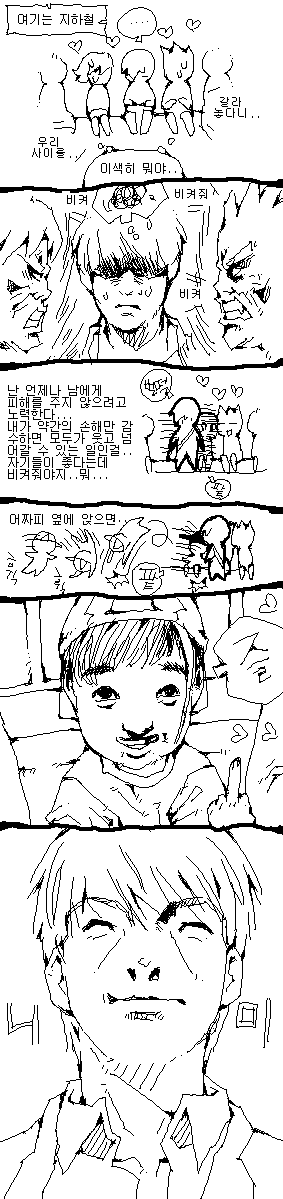 여기는 지하철
....
우리
사이를..
갈라
놓다니..
이색히 뭐야..
비켜
비켜줘
비켜
난 언제나 남에게
피해를 주지 않으려고
노력한다..
내가 약간의 손해만 감
수하면 모두가 웃고 넘
어갈 수 있는 일인걸..
자기들이 좋다는데
비켜줘야지..뭐...
벌떡
어짜피 옆에 앉으면..
네
미